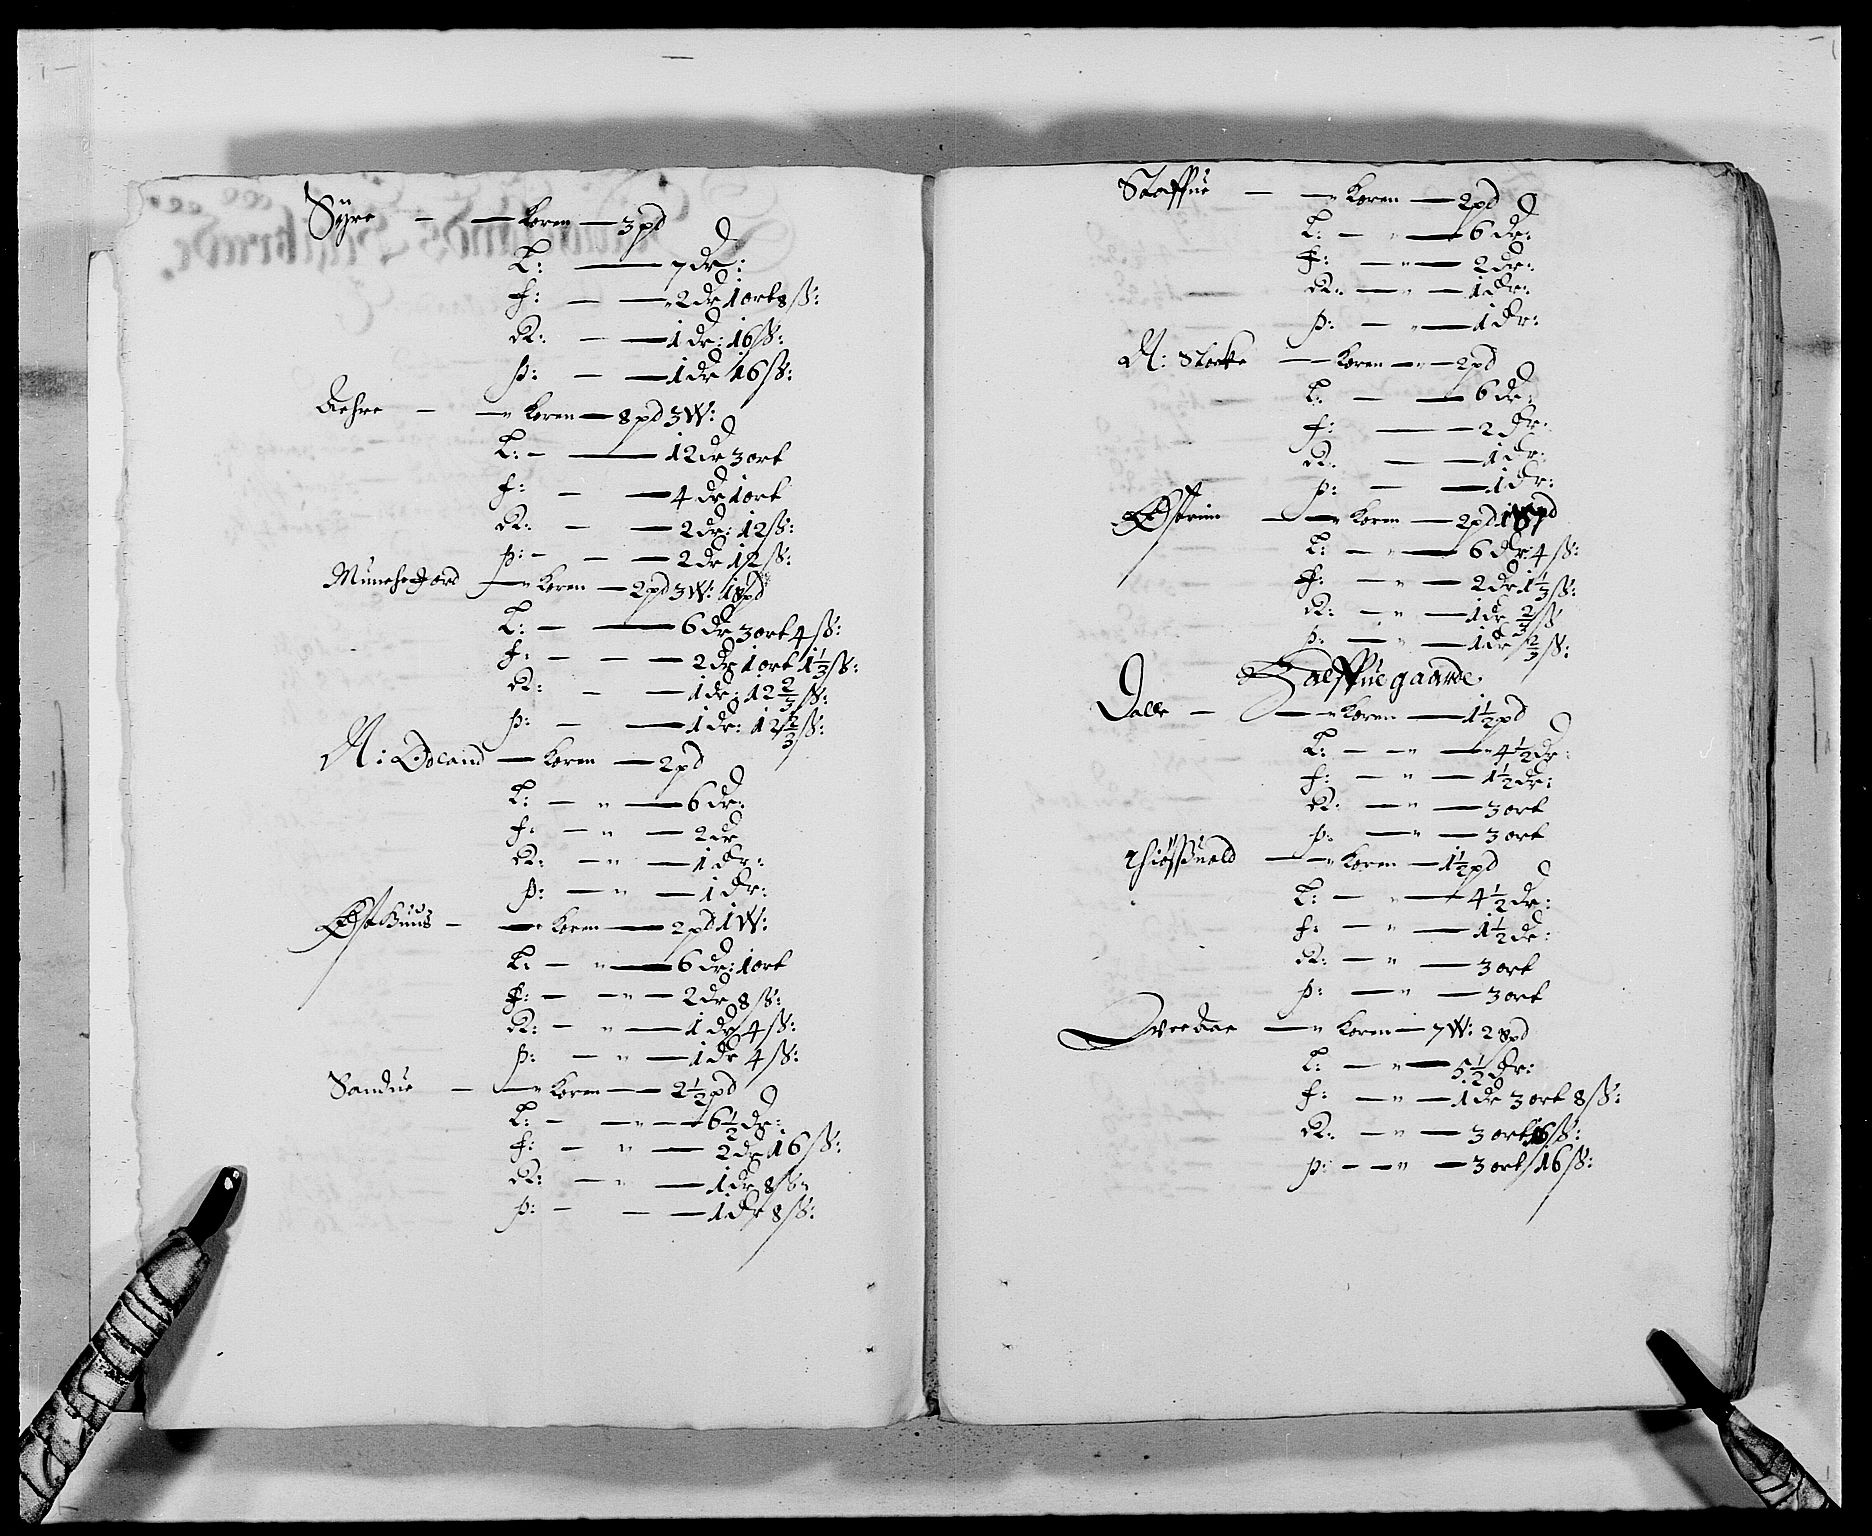 Syre — — Koren — 3 pd
L: — 7 dr:
f: — — 2 dr 1 ort 8 ß:
R: — — 1 dr: 16 ß:
p: — — 1 dr 16 ß:
Achre — — Koren — 8 pd 3 W:
L: — — 12 dr 3 ort
f: — — 4 dr 1 ort
R: — — 2 dr: 12 ß:
p: — — — 2 dr 12 ß:
Munchejord — Koren — 2 pd 3 W: 18 pd
L: — — 6 dr 3 ort 4 ß:
f: — — — 2 dr 1 ort 1 1/3 ß:
R: — — 1 dr: 12 2/3 ß:
p: — — 1 dr: 12 2/3 ß:
N: Døland — Koren — 2 pd
L: — " — 6 dr:
f: — " — 2 dr
R: — " — 1 dr:
p: — " — 1 dr:
Østhuus — — Koren — 2 pd 1 W:
L: — " — 6 dr: 1 ort
f: — " — 2 dr 8 ß:
R: — " — 1 dr 4 ß:
p: — " — 1 dr 4 ß:
Sandue — — Koren — 2 1/2 pd
L: — — " — 6 1/2 dr:
f: — " — 2 dr 16 ß:
R: — " — 1 dr 8 ß:
p: — — — 1 dr 8 ß:
Staffue — — Koren — 2 pd
L: — " — 6 dr:
f: — " — 2 dr:
R: — " — 1 dr:
p: — " — 1 dr:
N: Stocke — — Koren — 2 pd
L: — — 6 dr:
f: — — 2 dr:
R: — — 1 dr:
p: — — 1 dr:
Østrim — — Koren — 2 pd
L: — " — 6 dr: 4 ß:
f: — " — 2 dr 1 1/3 ß:
R: — " — 1 dr 2/3 ß
p: — " — 1 dr 2/3 ß:
Halffue gaarde
Dalle — — Koren — 1 1/2 pd
L: — " — 4 1/2 dr:
f: — " — 1 1/2 dr:
R: — " — 3 ort
p: — " — 3 ort
— Koren — 1 1/2 pd
L: — " — 4 1/2 dr:
f: — " — 1 1/2 dr:
R: — " — 3 ort
p: — " — 3 ort
— Koren — 7 W: 28 pd
L: — " — 5 1/2 dr:
f: — " — 1 dr 3 ort 8 ß:
R: — " — 3 ort 16 ß:
p: — — " — 3 ort 16 ß: